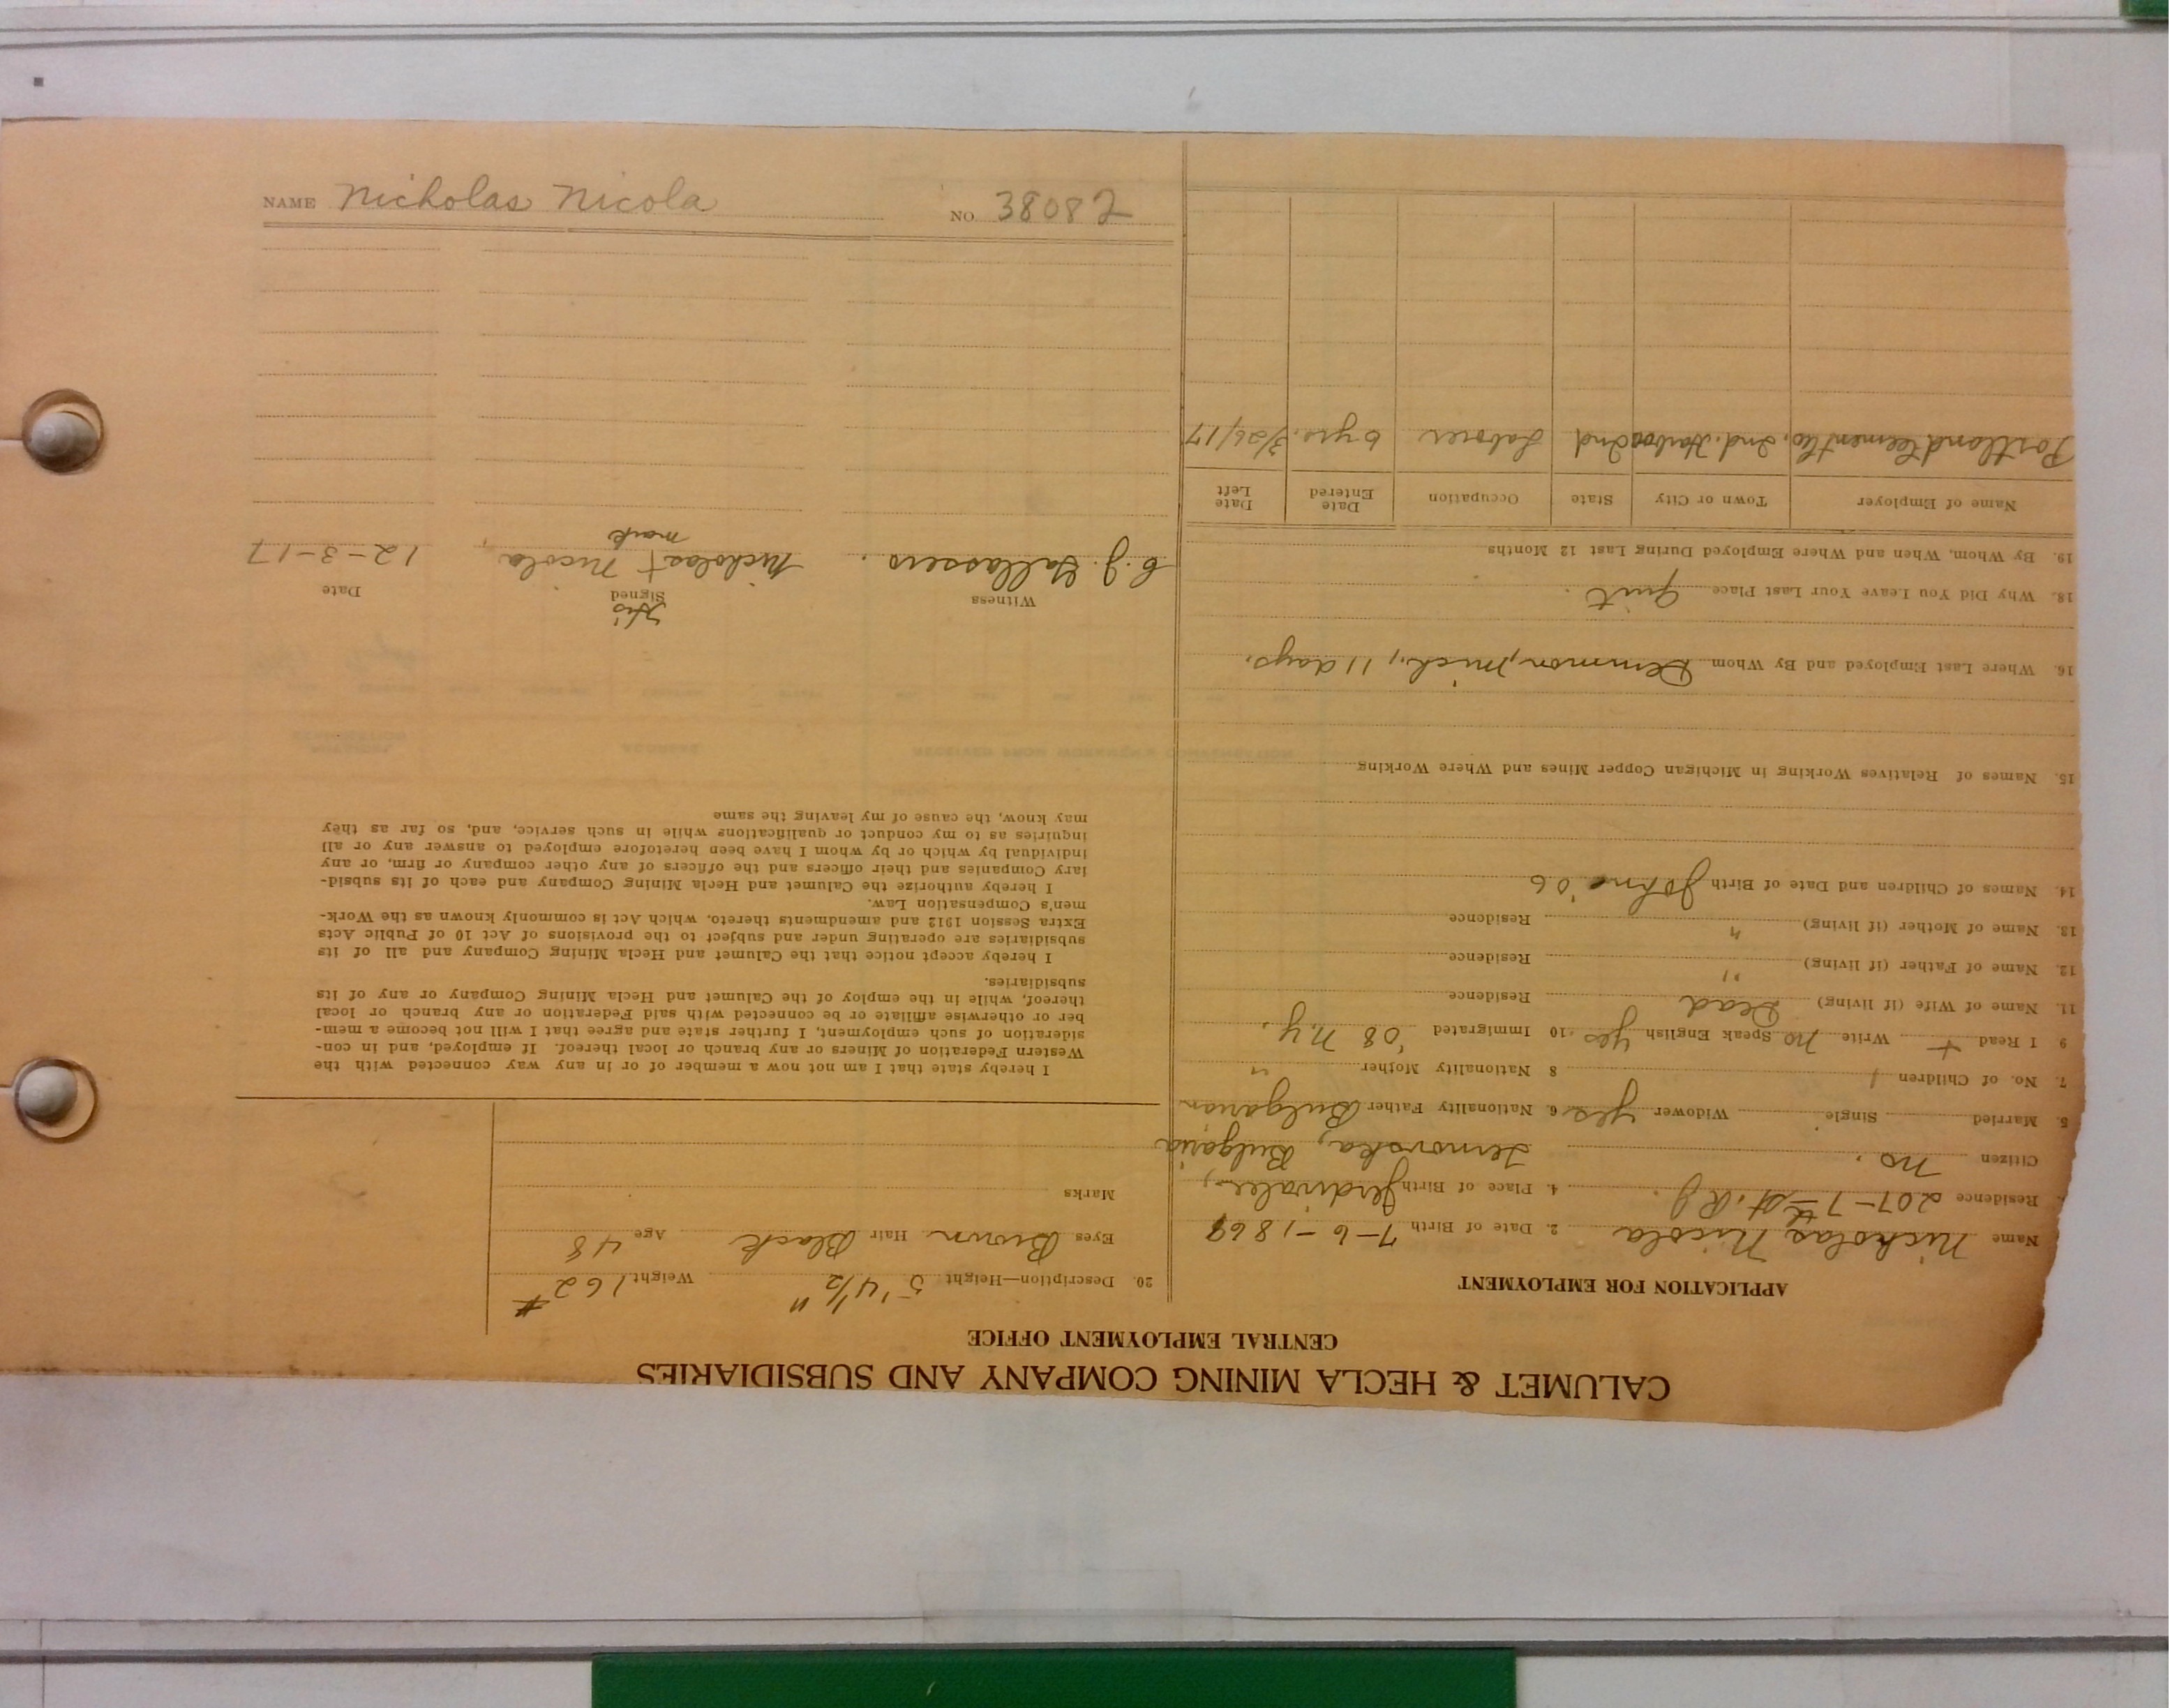 NAME Nicholas Nicola NO. 38082
CALUMET & HECLA MINING COMPANY AND SUBSIDIARIES
CENTRAL EMPLOYMENT OFFICE
APPLICATION FOR EMPLOYMENT
Name Nicholas Nicola 2. Date of Birth 7-6-1869
Residence 207-7th St. R J. 4. Place of Birth
Citizen no. Bulgaria
5. Married Single Widower yes 6. Nationality Father Bulgarian
7. No. of Children 1 8 Nationality Mother "
9 I Read + Write no Speak English yes 10 Immigrated '08 N.Y.
11. Name of Wife (if living) Dead Residence
12. Name of Father (if living) " Residence
13. Name of Mother (if living) " Residence
14. Names of Children and Date of Birth '06
15. Names of Relatives Working in Michigan Copper Mines and Where Working
16. Where Last Employed and By Whom Demmon, Mich., 11 days.
18. Why Did You Leave Your Last Place quit.
19. By Whom, When and Where Employed During Last 12 Months
Name of Employer Town or City State Occupation Date Entered Date Left
Portland Cement Co. Ind. Harbor Ind Laborer 6 yrs. 3/26/17
20. Description—Height 5' 4 1/2" Weight 162 #
Eyes Brown Hair Black Age 48
Marks
I hereby state that I am not now a member of or in any way connected with the
Western Federation of Miners or any branch or local thereof. If employed, and in con-
sideration of such employment, I further state and agree that I will not become a mem-
ber or otherwise affiliate or be connected with said Federation or any branch or local
thereof, while in the employ of the Calumet and Hecla Mining Company or any of its
subsidiaries.
I hereby accept notice that the Calumet and Hecla Mining Company and all of its
subsidiaries are operating under and subject to the provisions of Act 10 of Public Acts
Extra Session 1912 and amendments thereto, which Act is commonly known as the Work-
men's Compensation Law.
I hereby authorize the Calumet and Hecla Mining Company and each of its subsid-
iary Companies and their officers and the officers of any other company or firm, or any
individual by which or by whom I have been heretofore employed to answer any or all
inquiries as to my conduct or qualifications while in such service, and, so far as they
may know, the cause of my leaving the same
Witness Signed Date
His
Nicholas + Nicola 12-3-17
mark